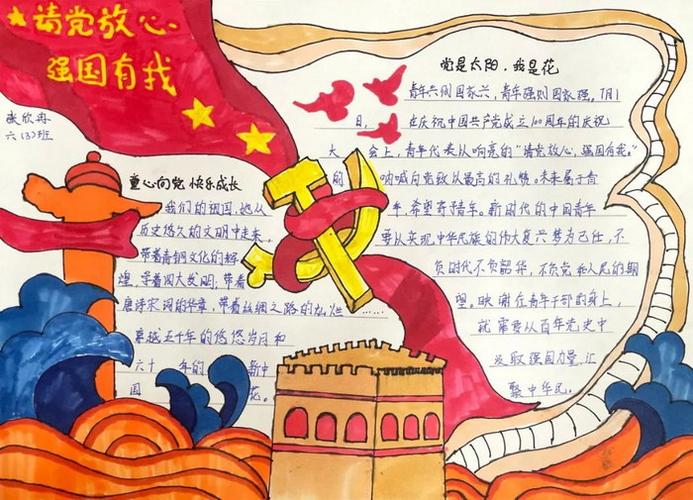 请党放心
强国有我
六(3)班
党是太阳,我是花
青年兴则国家兴,青年强则国家强。7月1
日, 在庆祝中国共产党成立100周年的庆祝
大会上,青年代表以响亮的“请党放心,强国有我。”
的呐喊向党致以最高的礼赞。未来属于青
年,希望寄予青年。新时代的中国青年
要以实现中华民族的伟大复兴梦为己任,不
负时代不负韶华,不负党和人民的期
望。映谢在青年干部的身上,
就需要从百年党史中
汲取强国力量,汇
聚中华民。
童心向党 快乐成长
我们的祖国,她从
历史悠久的文明中走来,
带着青铜文化的辉
煌,寻着四大发明,带着
唐诗宋词的华章,带着丝绸之路的灿烂……
穿越五千年的悠悠岁月和
六十 年的 新中
国 花。